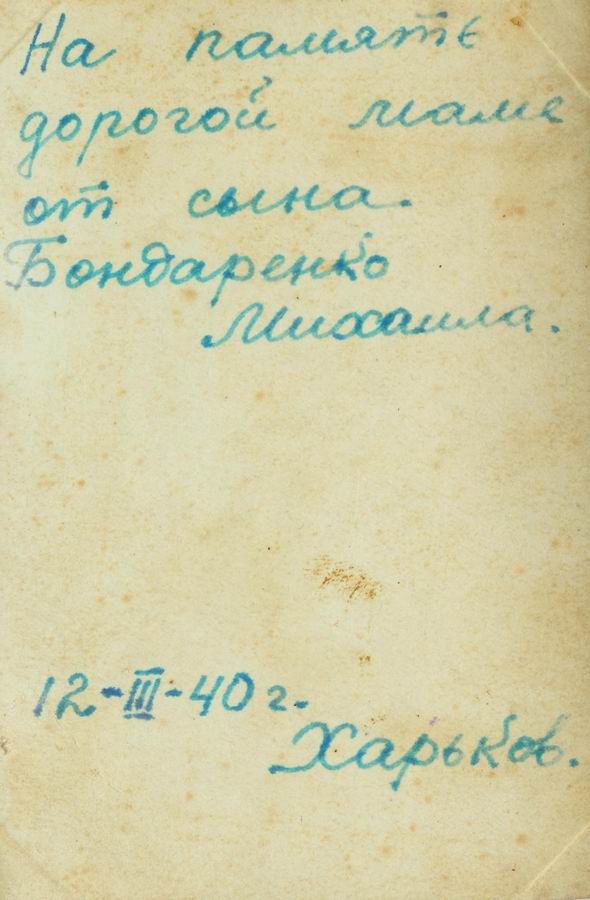 На память
дорогой маме
от сына.
Бондаренко
Михаила.
12-III-40 г.
Харьков.